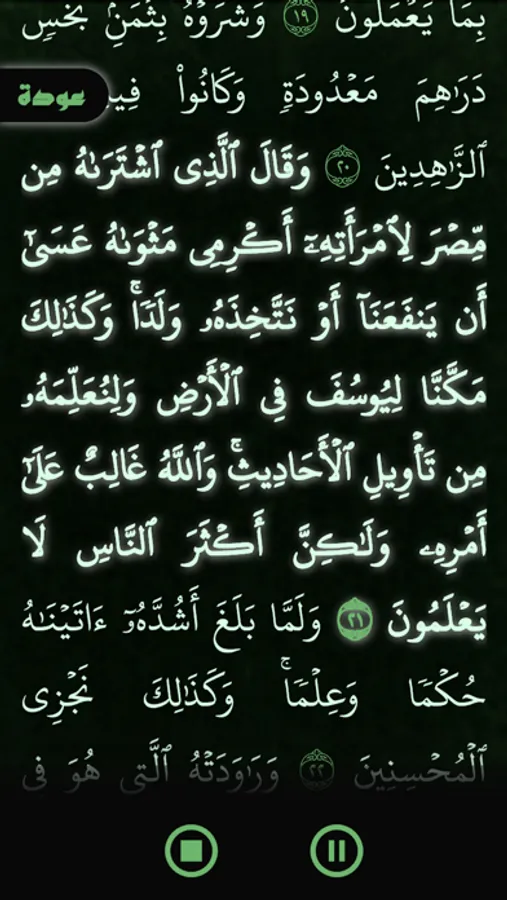 بِمَا يَعْمَلُونَ ١٩ وَشَرَوْهُ بِثَمَنٍۭ بَخْسٍ
دَرَٰهِمَ مَعْدُودَةٍ وَكَانُوا۟ فِيهِ
عودة
ٱلزَّٰهِدِينَ ٢٠ وَقَالَ ٱلَّذِى ٱشْتَرَىٰهُ مِن
مِّصْرَ لِٱمْرَأَتِهِۦٓ أَكْرِمِى مَثْوَىٰهُ عَسَىٰٓ
أَن يَنفَعَنَآ أَوْ نَتَّخِذَهُۥ وَلَدًا ۚ وَكَذَٰلِكَ
مَكَّنَّا لِيُوسُفَ فِى ٱلْأَرْضِ وَلِنُعَلِّمَهُۥ
مِن تَأْوِيلِ ٱلْأَحَادِيثِ ۚ وَٱللَّهُ غَالِبٌ عَلَىٰٓ
أَمْرِهِۦ وَلَٰكِنَّ أَكْثَرَ ٱلنَّاسِ لَا
يَعْلَمُونَ ٢١ وَلَمَّا بَلَغَ أَشُدَّهُۥٓ ءَاتَيْنَٰهُ
حُكْمًا وَعِلْمًا ۚ وَكَذَٰلِكَ نَجْزِى
ٱلْمُحْسِنِينَ ٢٢ وَرَٰوَدَتْهُ ٱلَّتِى هُوَ فِى